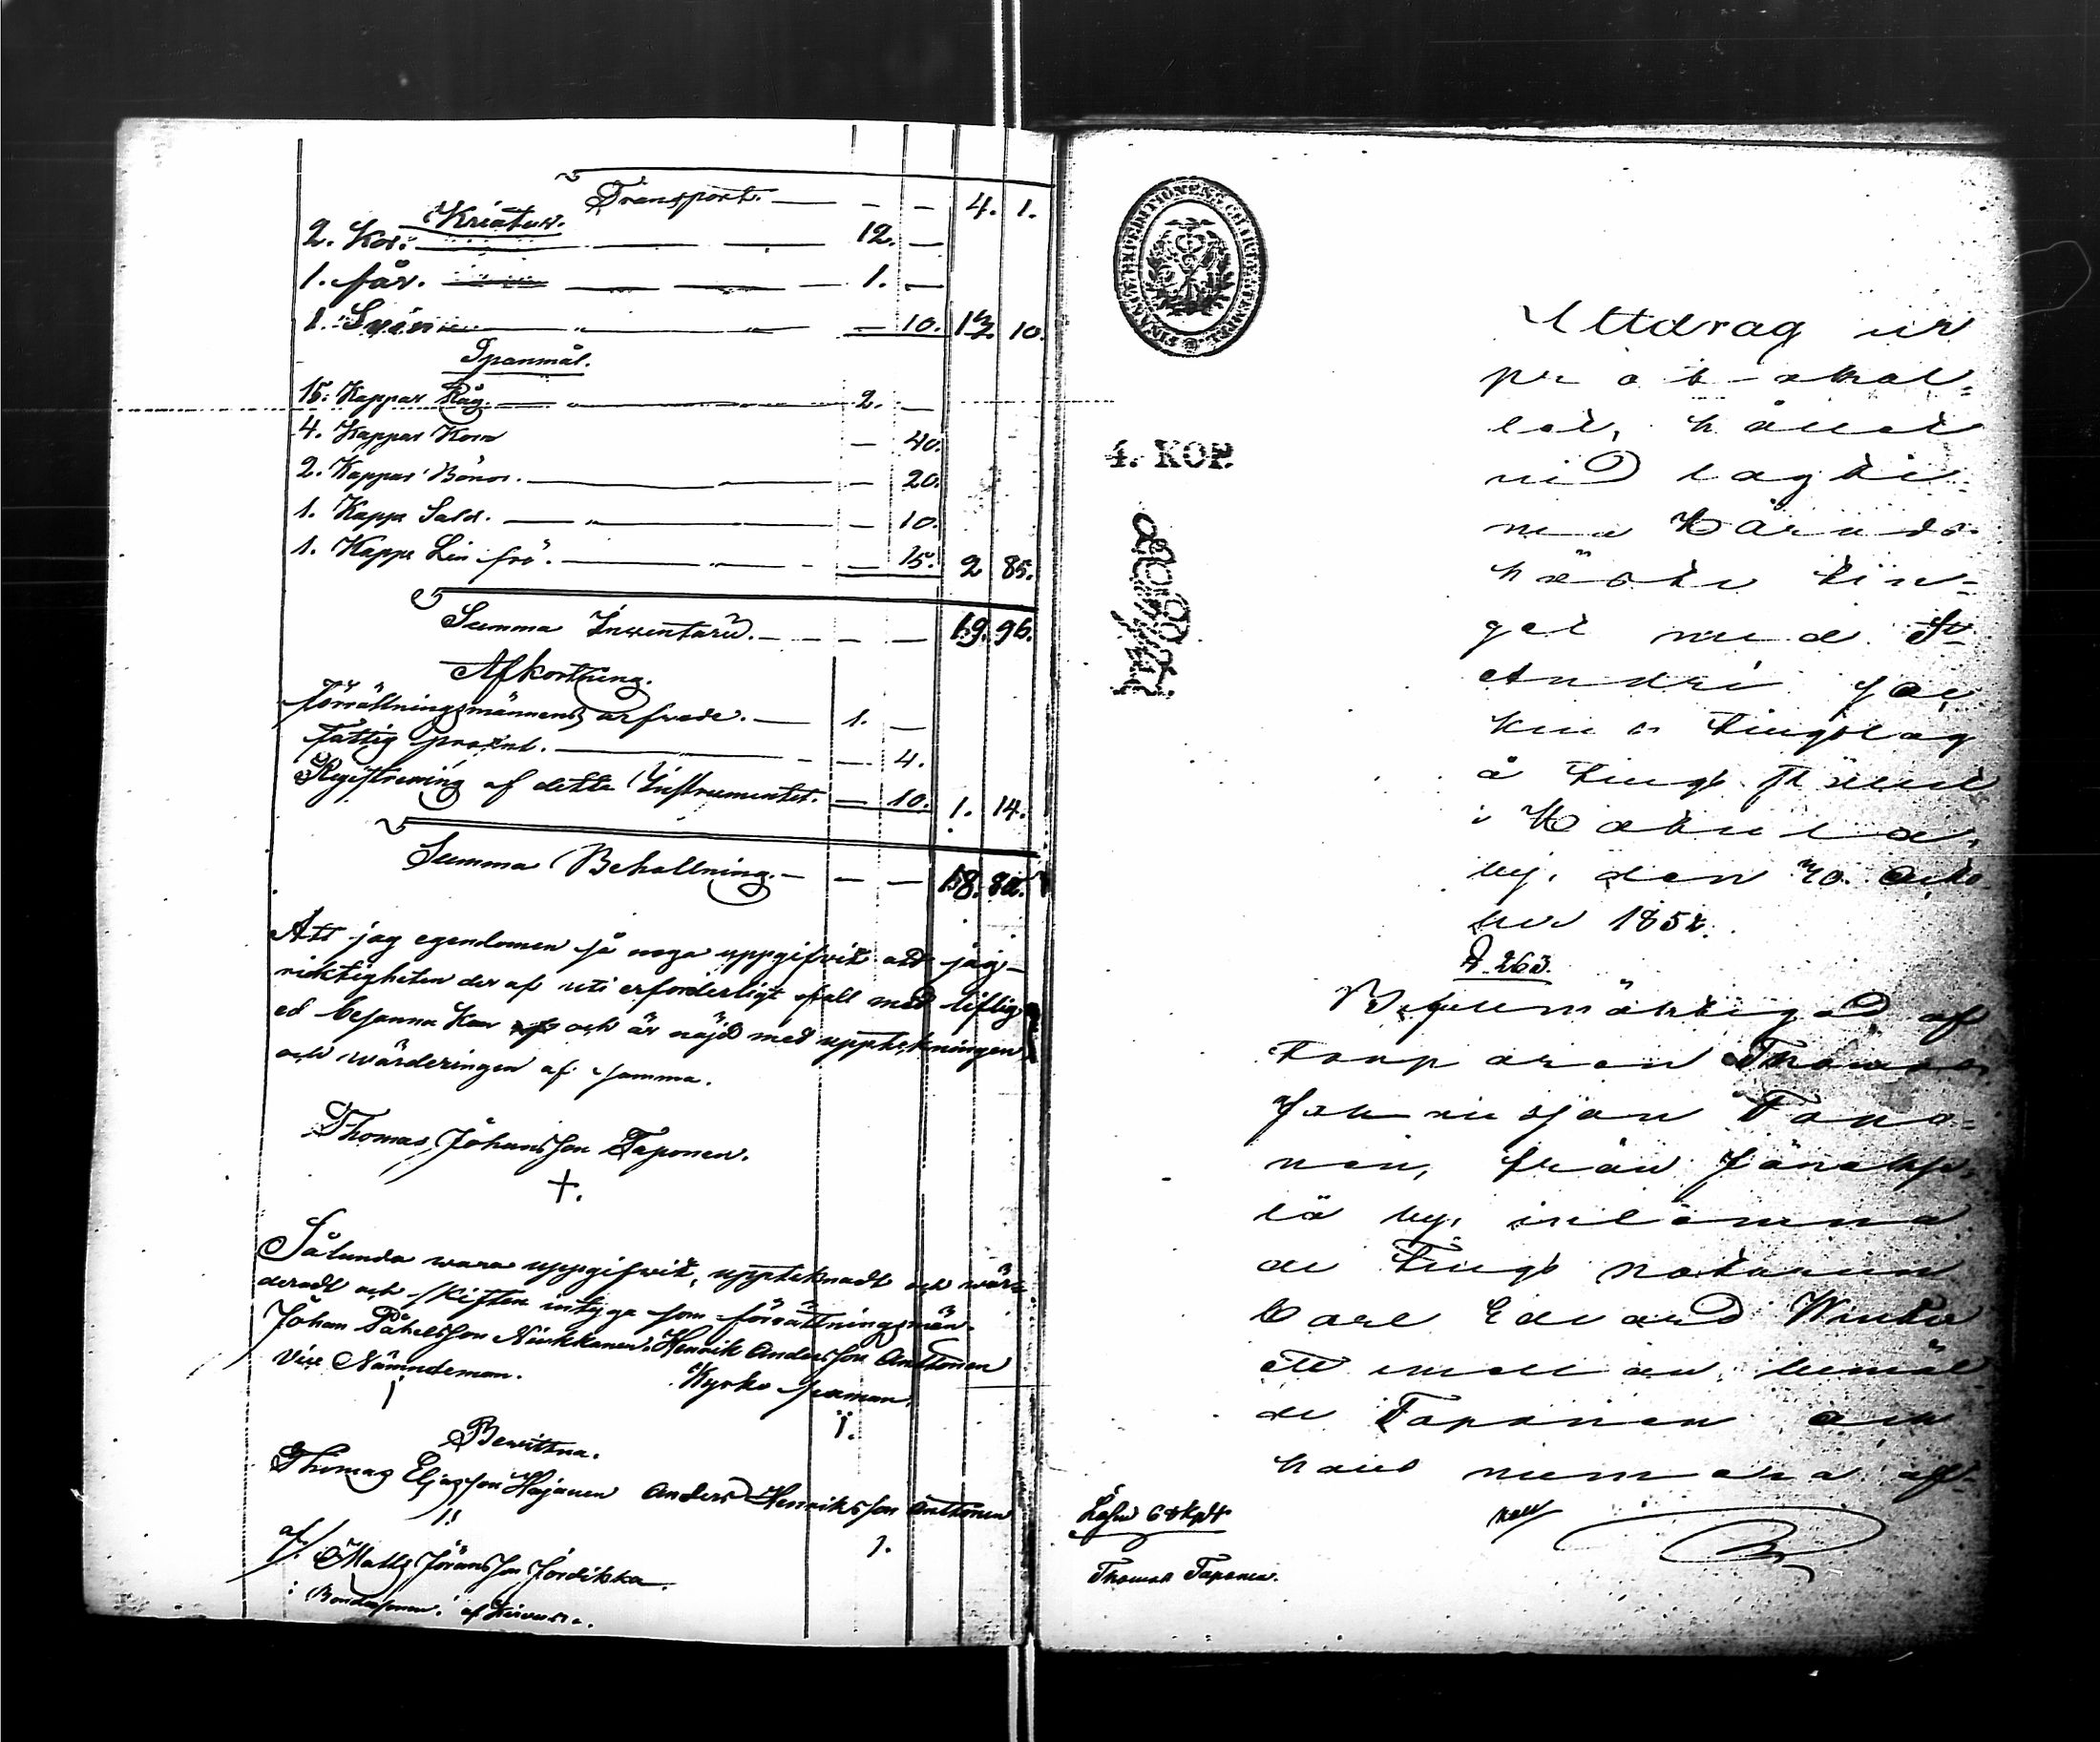 Transport. — — — 4. 1.
Kreatur.
2. Kor. — — — 12. —
1. får. — — — 1. —
1. Svin — — — 10. 13 10.
Spanmål.
15. Kappar Råg. — — 2. —
4. Kappar Korn — 40.
2. Kappar Bönor. — — 20.
1. Kappe Salt. — — 10.
1. Kappe Lin frö. — — 15. 2 85.
Summa Inventarii. — — — 19. 96.
Afkortning.
förrättningsmännens arfvode. — 1. —
Fattig procent. — — 4.
Registrering af detta Instrumentet. — 10. 1. 14.
Summa Behållning. — — — 18. 82.
Att jag egendomen så noga uppgifvit att jag
riktigheten deraf uti erforderligt fall med liflig
ed besanna kan och är nöjd med uppteckningen
och wärderingen af samma.
Thomas Johansson Taponen.
+.
Sålunda wara uppgifvit, upptecknadt och wär-
deradt och skiften intyga som förrättningsmän.
Johan Påhelsson Henrik Andersson Anttonen
Vice Nämndeman. Kyrko
Bevittna.
Thomas Eljasson Anders Henriksson Anttonen
af/ Matts Jöransson
Bondeson af
FINANS EXPEDITIONENS CHARTÆ STEMPEL
4. KOP.
Utdrag ur
protokol-
let, hållet
vid lagti-
ma Härads
höste tin-
get med St
Andræ Soc-
kens tingslag
å tingsstället
i
by, den 20. Octo
ber 1852.
§ 263.
Befullmäktigad af
Torparen Thomas
Johansson Tapo-
nen, från
lä by, inlämna
de Tings notarien
Carl Edvard Winter
ett emellan bemäl
de Taponen och
hans numera af-
Thomas Taponen.